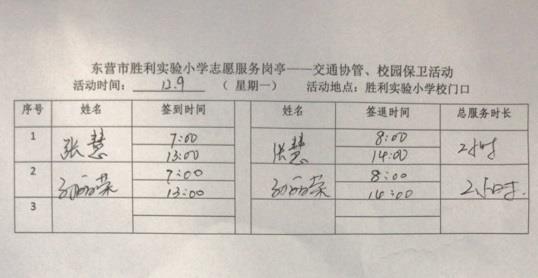 东营市胜利实验小学志愿服务岗亭——交通协管、校园保卫活动
活动时间： 12.9 （ 星期一） 活动地点：胜利实验小学校门口
序号 姓名 签到时间 姓名 签退时间 总服务时长
1 张慧 7:00 张慧 8:00 2小时
13:00 14:00
2 7:00 8:00 2小时.
13:00 14:00
3